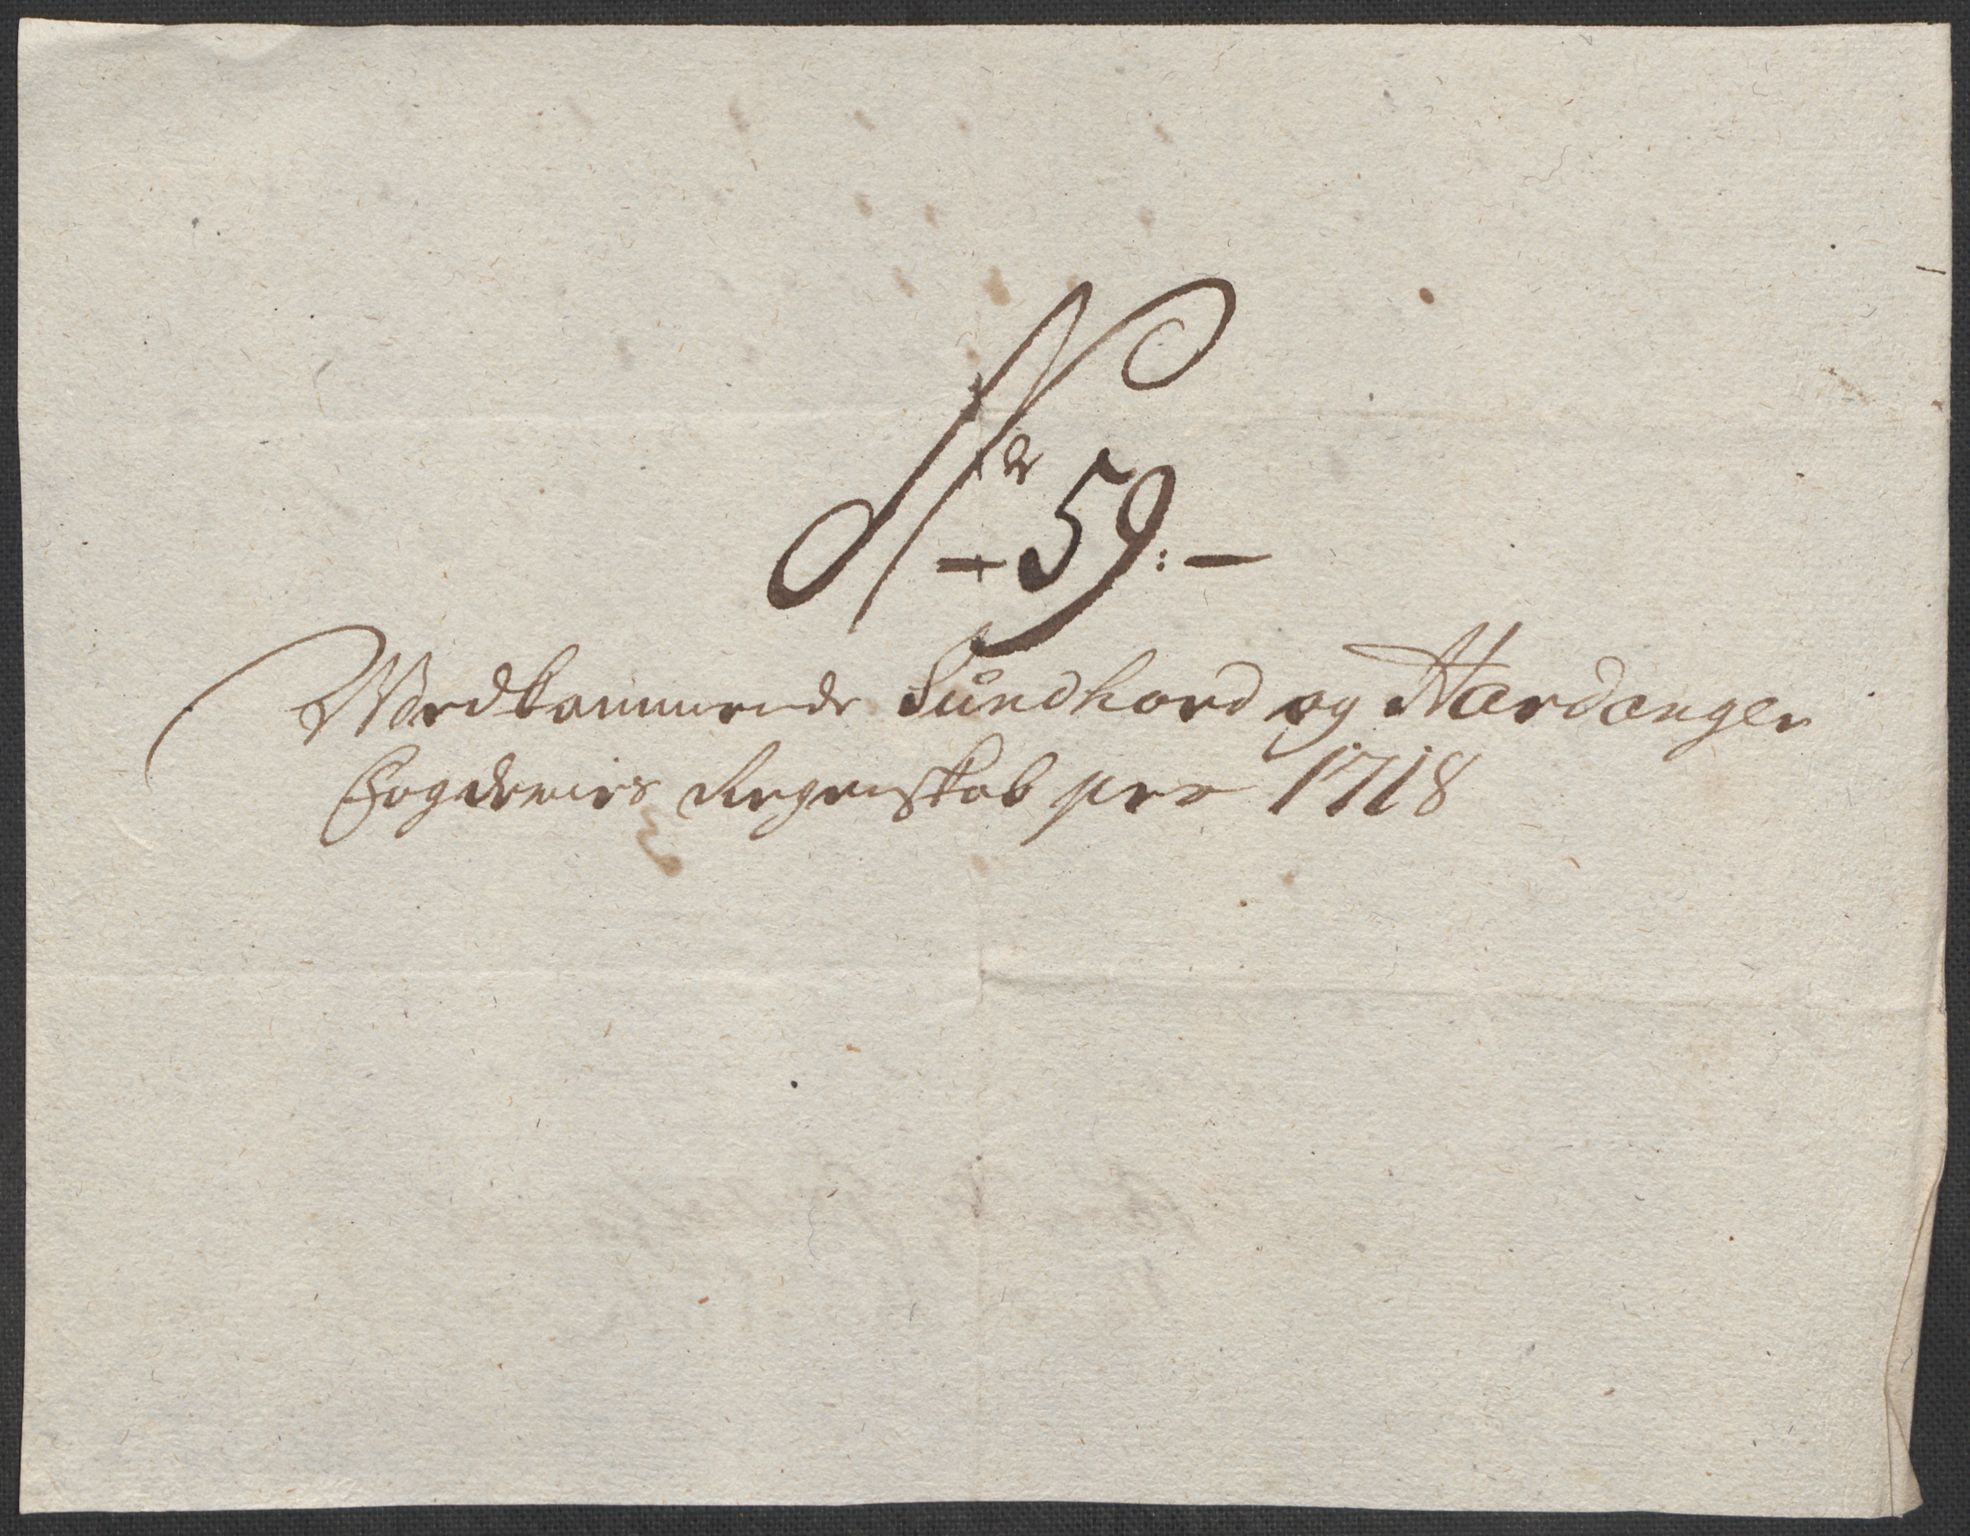 Nr 59:
Wedkommende Sundhord og Hardanger
Fogderiers Regenskab pro 1718